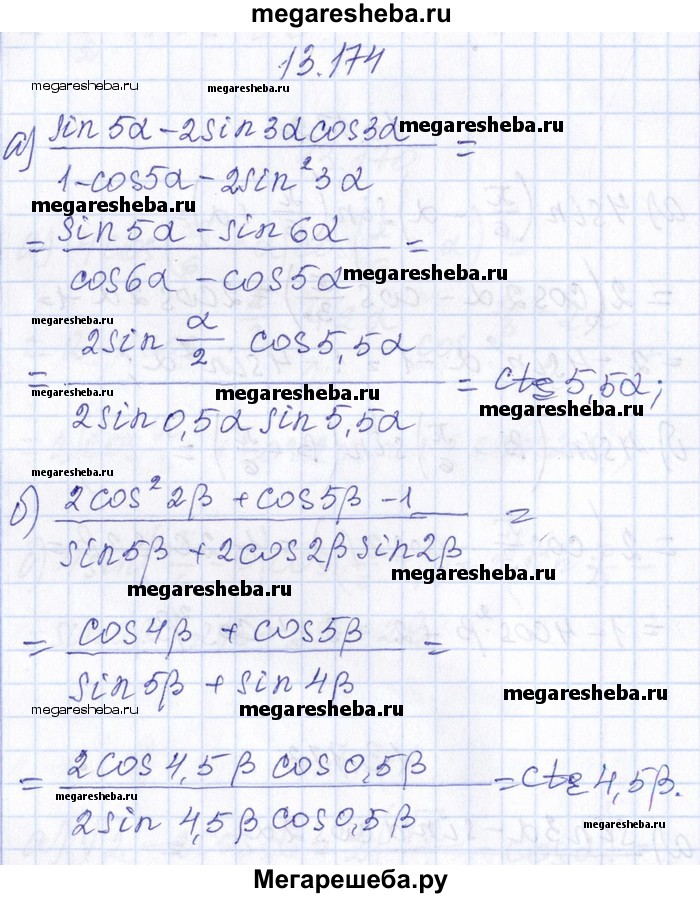 megaresheba.ru
13.174
megaresheba.ru megaresheba.ru
а) sin5α-2sin3αcos3α / 1-cos5α-2sin²3α =
megaresheba.ru
megaresheba.ru
= sin5α-sin6α / cos6α-cos5α =
megaresheba.ru
megaresheba.ru
= 2sin α/2 cos5,5α / 2sin0,5α sin5,5α = ctg5,5α;
megaresheba.ru megaresheba.ru
megaresheba.ru
megaresheba.ru
б) 2cos²2β+cos5β-1 / sin5β+2cos2βsin2β =
megaresheba.ru
megaresheba.ru
= cos4β+cos5β / sin5β+sin4β =
megaresheba.ru
megaresheba.ru megaresheba.ru
= 2cos4,5β cos0,5β / 2sin4,5β cos0,5β = ctg4,5β.
megaresheba.ru
megaresheba.ru
Мегарешеба.ру